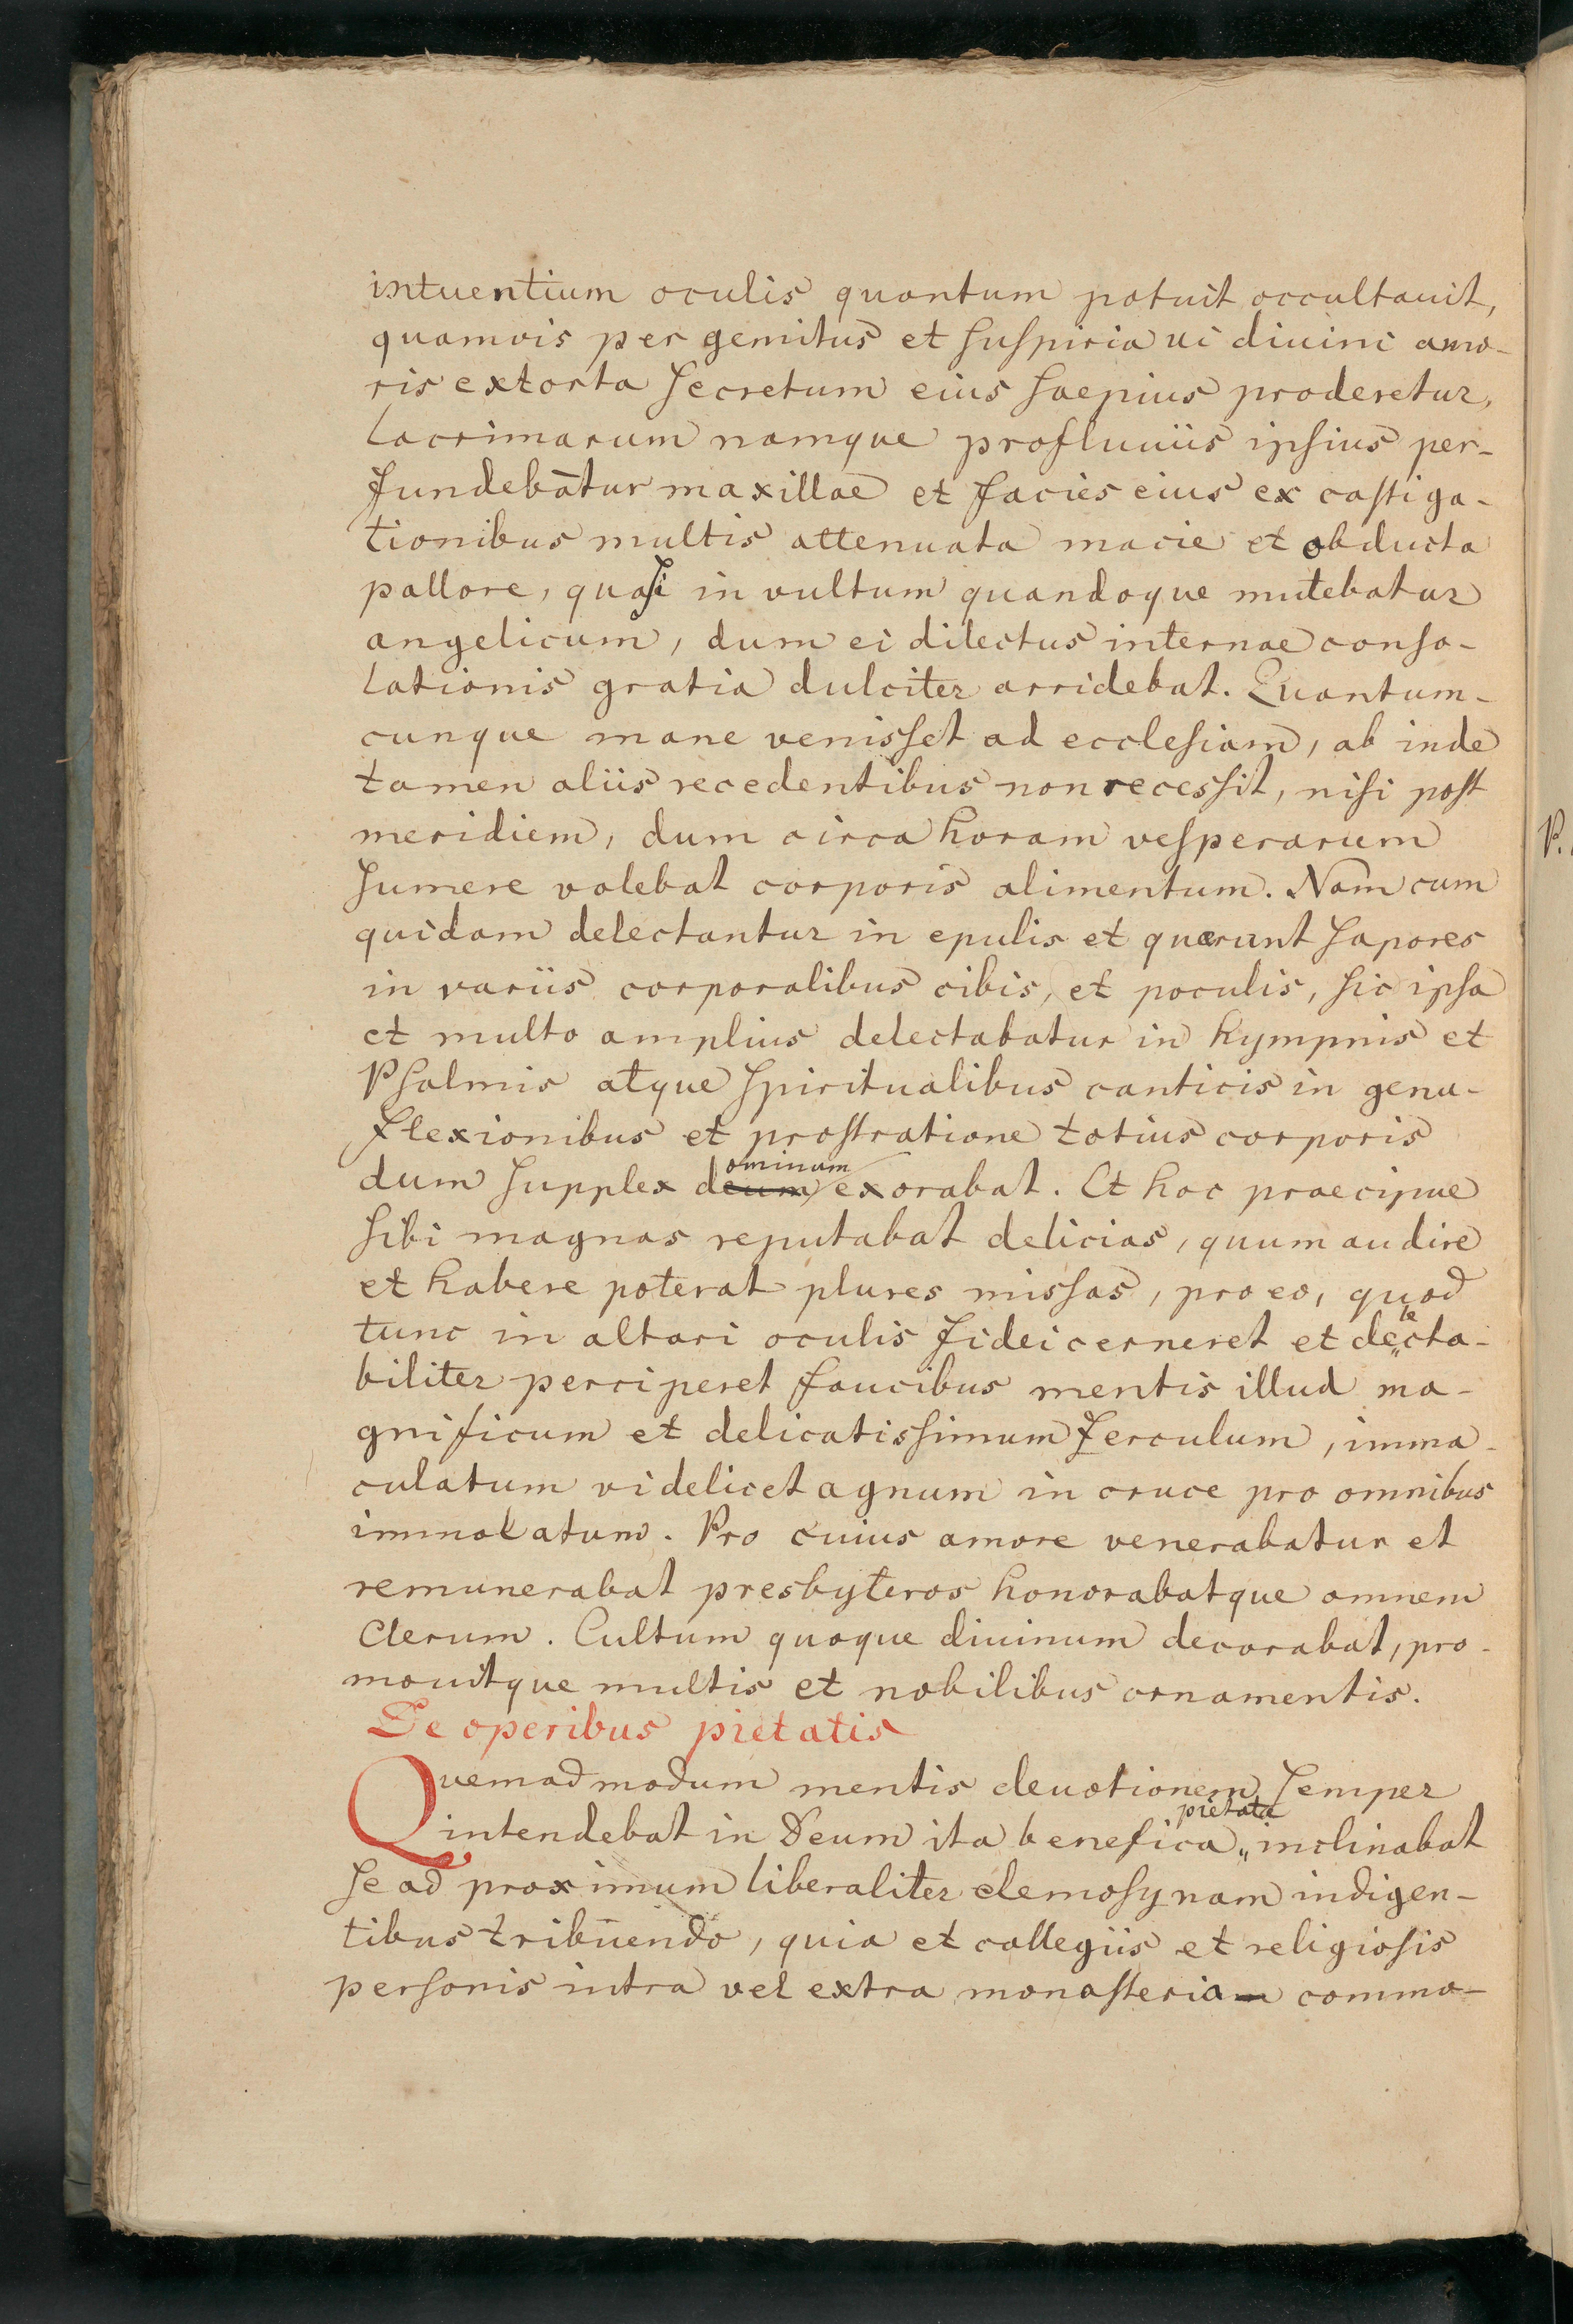 intuentium oculis quantum potuit occultauit,
quamvis per gemitus et suspiria ui diuini amo-
ris extorta secretum eius saepius proderetur,
lacrimarum namque profluuiis ipsius per-
fundebātur maxillae et facies eius ex castiga-
tionibus multis attenuata macie et obducta
pallore, quasi in vultum quandoque mutebatur
angelicum, dum ei dilectus internae conso-
lationis gratia dulciter arridebat. Quantum-
cunque mane venisset ad ecclesiam, ab inde
tamen aliis recedentibus non recessit, nisi post
meridiem, dum circa horam vesperarum
sumere volebat corporis alimentum. Nam cum
quidam delectantur in epulis et quaerunt sapores
in variis corporalibus cibis, et poculis, sic ipsa
et multo amplius delectabatur in hympnis et
Psalmis atque spiritualibus canticis in genu-
flexionibus et prostratione totius corporis
ominum
dum supplex deum exorabat. Et hoc praecipue
sibi magnas reputabat delicias, quum audire
et habere poterat plures missas, pro eo, quod
le
tunc in altari oculis fidei cerneret et de„cta-
biliter perciperet faucibus mentis illud ma-
gnificum et delicatissimum ferculum, imma-
culatum videlicet agnum in cruce pro omnibus
immolatum. Pro cuius amore venerabatur et
remunerabat presbyteros honorabatque omnem
Clerum. Cultum quoque diuinum decorabat, pro-
mouitque multis et nobilibus ornamentis.
De operibus pietatis
Quemadmodum mentis deuotionem semper
pietate
intendebat in Deum ita benefica„ inclinabat
se ad proximum liberaliter elemosynam indigen-
tibus tribuendo, quia et collegiis et religiosis
personis intra vel extra monasteria commo-
P.